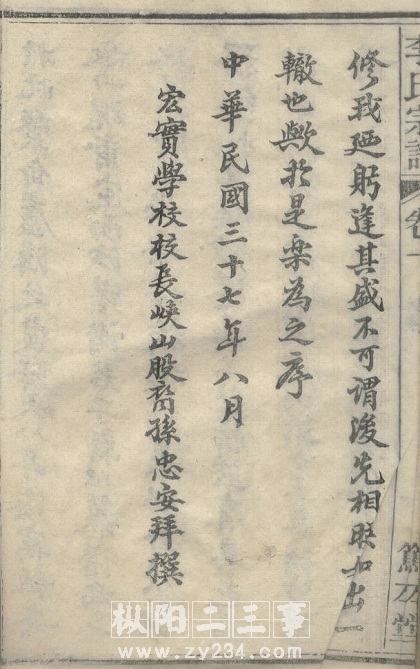 李氏宗譜 卷一 篤堂
修我廼躬逢其盛不可謂後先相如出一
轍也歟於是楽為之序
中華民國三十七年八月
宏實學校校長峽山股裔孫忠安拜撰
枞阳二三事
www.zy234.com